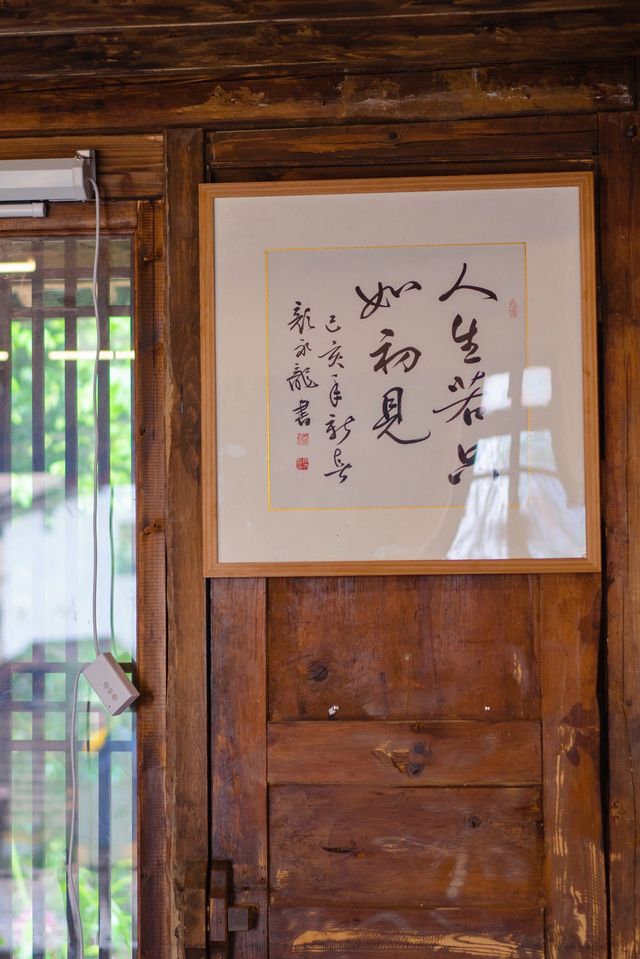 人生若只
如初見
己亥年新春
永龍書